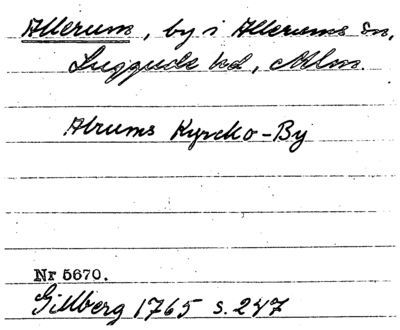 Allerum, by i Allerums sn,
Luggude hd, Mlm.
Alrums Kyrcko-By
Nr 5670.
Gillberg 1765 s. 247